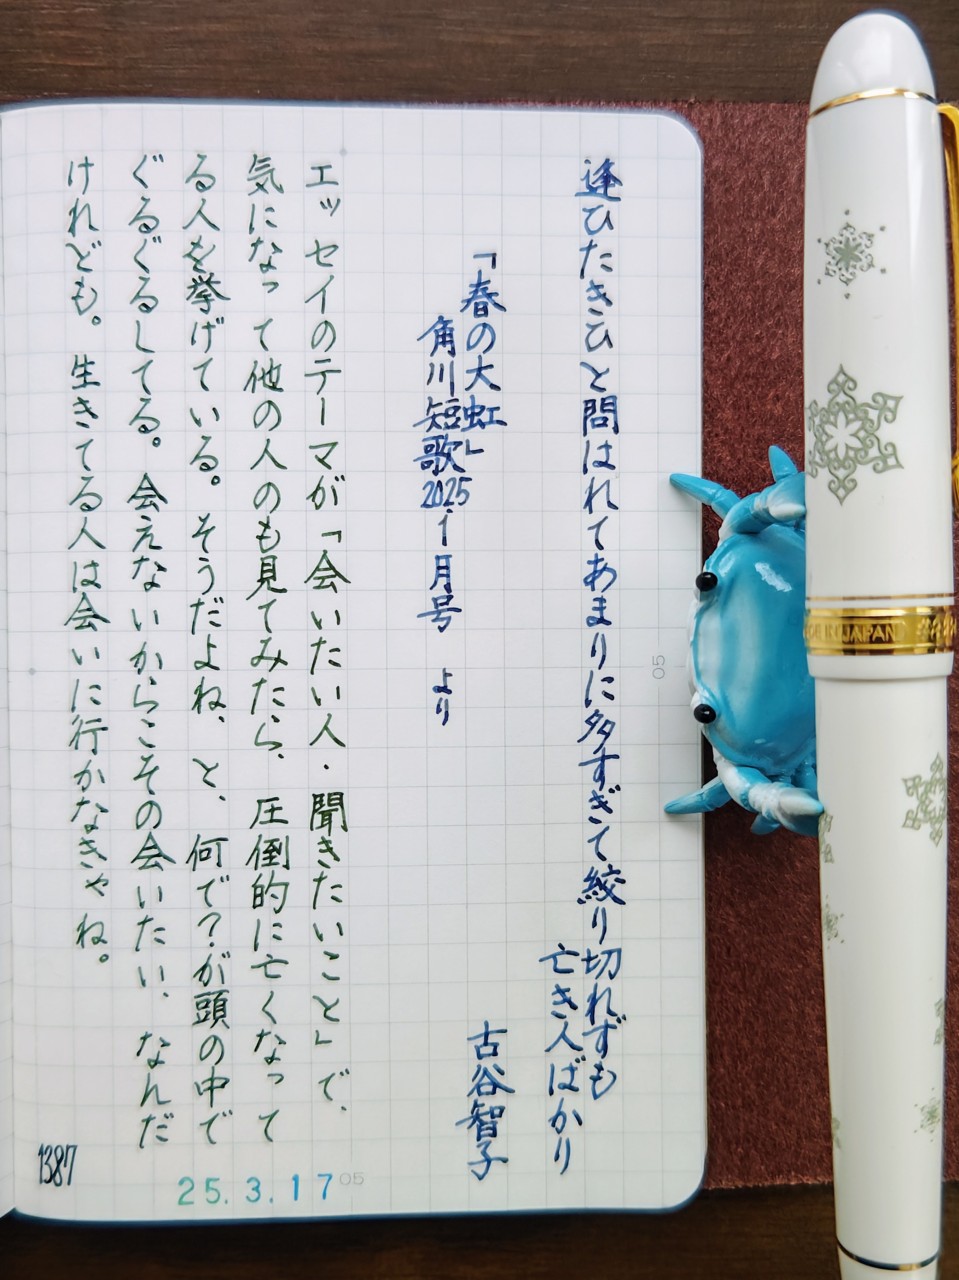 逢ひたきひと問はれてあまりに多すぎて絞り切れずも
亡き人ばかり
古谷智子
「春の大虹」
角川短歌2025.1月号 より
エッセイのテーマが「会いたい人・聞きたいこと」で、
気になって他の人のも見てみたら、圧倒的に亡くなって
る人を挙げている。そうだよね、と、何で?が頭の中で
ぐるぐるしてる。会えないからこその会いたい、なんだ
けれども。生きてる人は会いに行かなきゃね。
1387
25.3.17
05
05
JAPAN